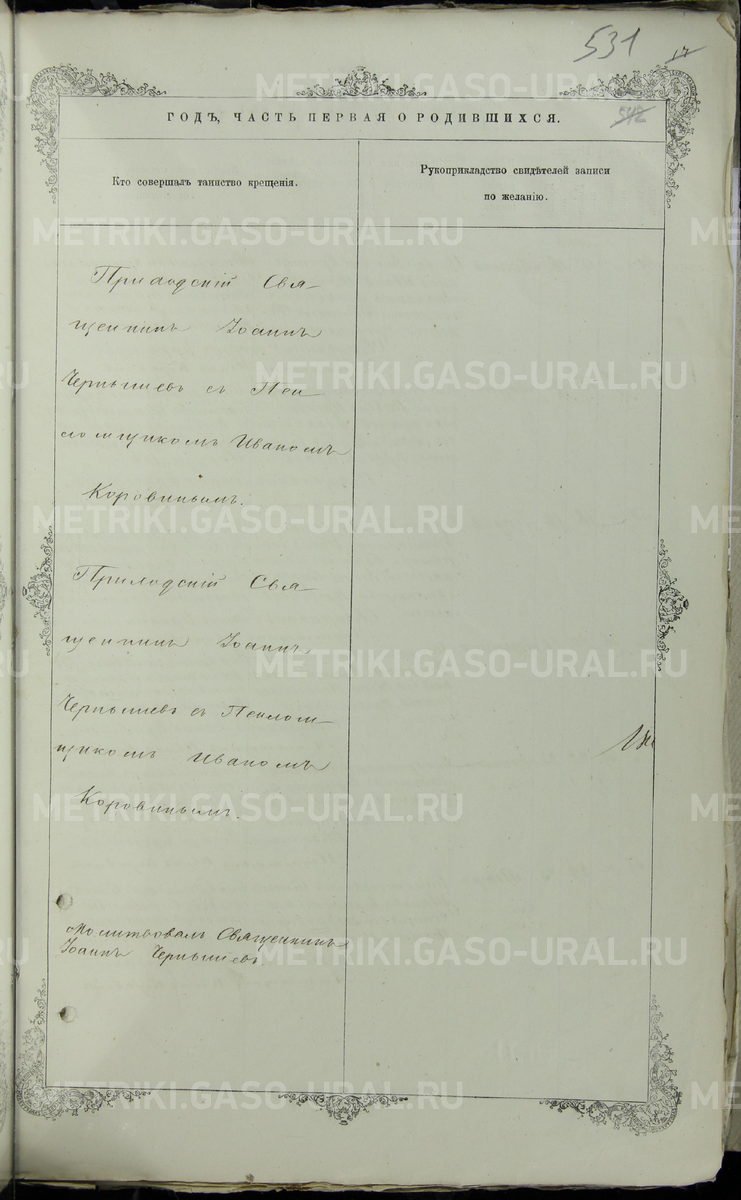 531
17
512
ГОДЪ, ЧАСТЬ ПЕРВАЯ О РОДИВШИХСЯ.
Кто совершалъ таинство крещенія.
Рукоприкладство свидѣтелей записи
по желанію.
Приходскій Свя-
щенникъ Іоаннъ
Чернышевъ съ Пса
ломщикомъ Иваномъ
Коровинымъ.
Приходскій Свя-
щенникъ Іоаннъ
Чернышевъ съ Псалом-
щикомъ Иваномъ
Коровинымъ.
Молитвовалъ Священникъ
Іоаннъ Чернышевъ.
METRIKI.GASO-URAL.RU